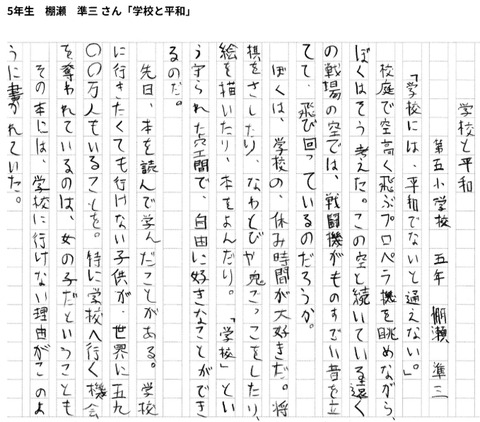 5年生　棚瀬　準三 さん「学校と平和」
学校と平和
第五小学校　五年　棚瀬　準三
「学校には、平和でないと通えない。」
校庭で空高く飛ぶプロペラ機を眺めながら、
ぼくはそう考えた。この空と続いている遠く
の戦場の空では、戦闘機がものすごい音を立
てて、飛び回っているのだろうか。
ぼくは、学校の、休み時間が大好きだ。将
棋をさしたり、なわとびや鬼ごっこをしたり、
絵を描いたり、本をよんだり。「学校」とい
う守られた空間で、自由に好きなことができ
るのだ。
先日、本を読んで学んだことがある。学校
に行きたくても行けない子供が、世界に五九
〇〇万人もいることを。特に学校へ行く機会
を奪われているのは、女の子だということも
その本には、学校に行けない理由がこのよ
うに書かれていた。